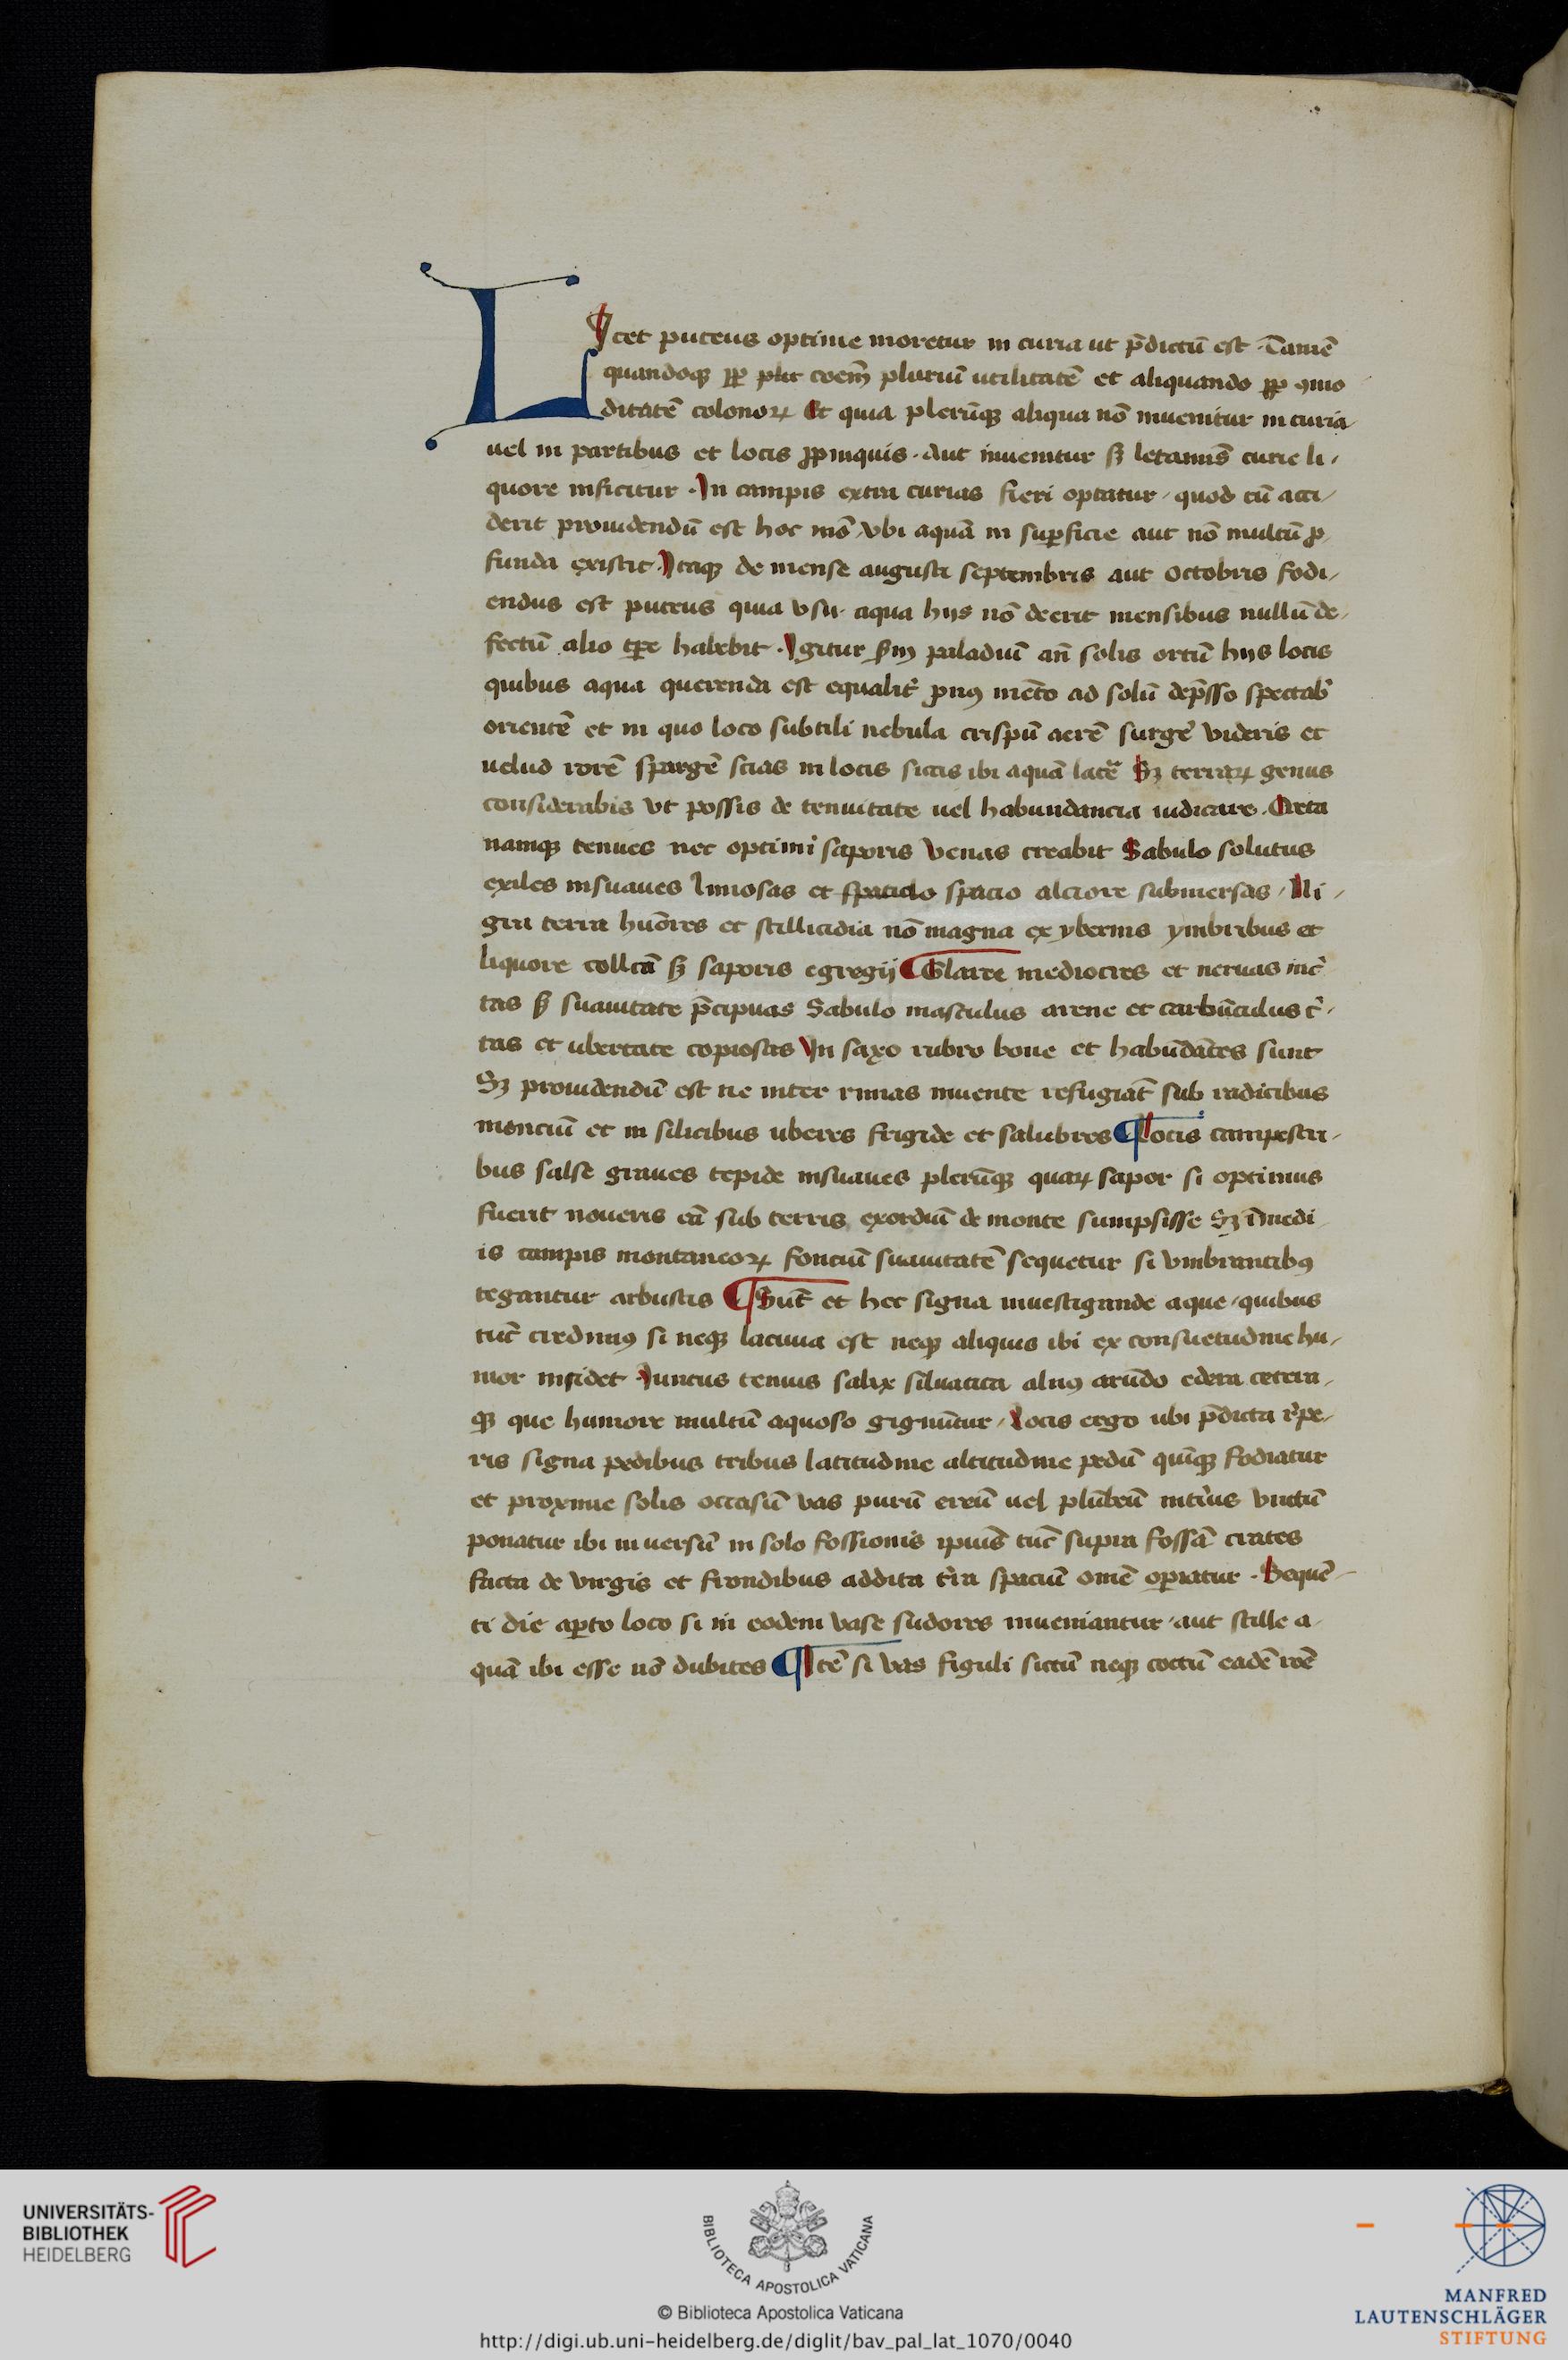 LIcet puteus optime moretur in curia ut p̄dictū est · Tamē
quandoqꝫ ꝓp̄ plur̄ coem̄ pluriū utilitatē et aliquando ꝓp̄ ꝯmo
ditatē colonoꝝ Et quia plerūqꝫ aliqua nō inuenitur in curia
uel in partibus et locis ꝓpinquis · aut inuenitur sꝫ letamis̄ curie li-
quore inficitur · In campis extra curias fieri optatur / quod cū acci-
derit prouidendū est hoc mō / vbi aquā in suꝑficie aut nō multū ꝓ
funda existit · Itaqꝫ de mense augusti septembris aut octobris fodi-
endus est puteus quia vsu · aqua hijs nō deerit mensibus nullū de-
fectū alio tꝑe habebit · Igitur ẜm paladiū an̄ solis ortū hijs locis
quibus aqua querenda est equalit̓ ꝓnꝰ mēto ad solū dep̄sso spectab̓
orientē et in quo loco subtili nebula crispū aerē surge̓ videris et
uelud rorē spargē scias in locis siccis ibi aquā late̓ Sꝫ terraꝝ genus
considerabis vt possis de tenuitate uel habundancia iudicare · Creta
namqꝫ tenues nec optimi saporis venas creabit Sabulo solutus
exiles insuaues limosas et spaciolo spacio alciore submersas / Ni-
gra terra humōres et stillicidia nō magna ex ybernis ymbribus et
liquore collcā sꝫ saporis egregij ¶ Glaree mediocres et neruas inc̓
tas sꝫ suauitate p̄cipuas Sabulo masculus arene et carbūculus c̓-
tas et ubertate copiosas In saxo rubro bone et habūdātes sunt
Sꝫ prouidendū est ne inter rimas inuente refugiāt sub radicibus
monciū et in silicibus uberes frigide et salubres ¶ Locis campestri-
bus salse graues tepide insuaues plerūqꝫ quaꝝ sapor si optimus
fuerit noueris eā sub terris exordiū de monte sumpsisse Sꝫ ī medi
is campis montaneoꝝ fonciū suauitatē sequetur si vmbrantibꝰ
tegantur arbustis ¶ Sūt et hec signa inuestigande aque / quibus
tūc credimꝰ si neqꝫ lacuna est neqꝫ aliquis ibi ex consuetudine hu-
mor insidet Iuncus tenuis salix siluatica alnꝰ arūdo edera cetera-
qꝫ que humore multū aquoso gignūtur / Locis ergo ubi p̄dicta r̓pe-
ris signa pedibus tribus latitudine altitudine pedū quīqꝫ fodiatur
et proxime solis occasū vas purū ereū uel plūbeū int̓ius vnctū
ponatur ibi in uersū in solo fossionis ipius̄ tūc supra fossā crates
facta de virgis et frondibus addita t̓ra spaciū omē oꝑiatur · Sequē-
ti die aꝑto loco si in eodem vase sudores inueniantur / aut stille a-
quā ibi esse nō dubites ¶ Itē si vas figuli siccū neqꝫ coctū eadē roē
UNIVERSITÄTS-
BIBLIOTHEK
HEIDELBERG
BIBLIOTECA APOSTOLICA VATICANA
© Biblioteca Apostolica Vaticana
http://digi.ub.uni-heidelberg.de/diglit/bav_pal_lat_1070/0040
MANFRED
LAUTENSCHLÄGER
STIFTUNG